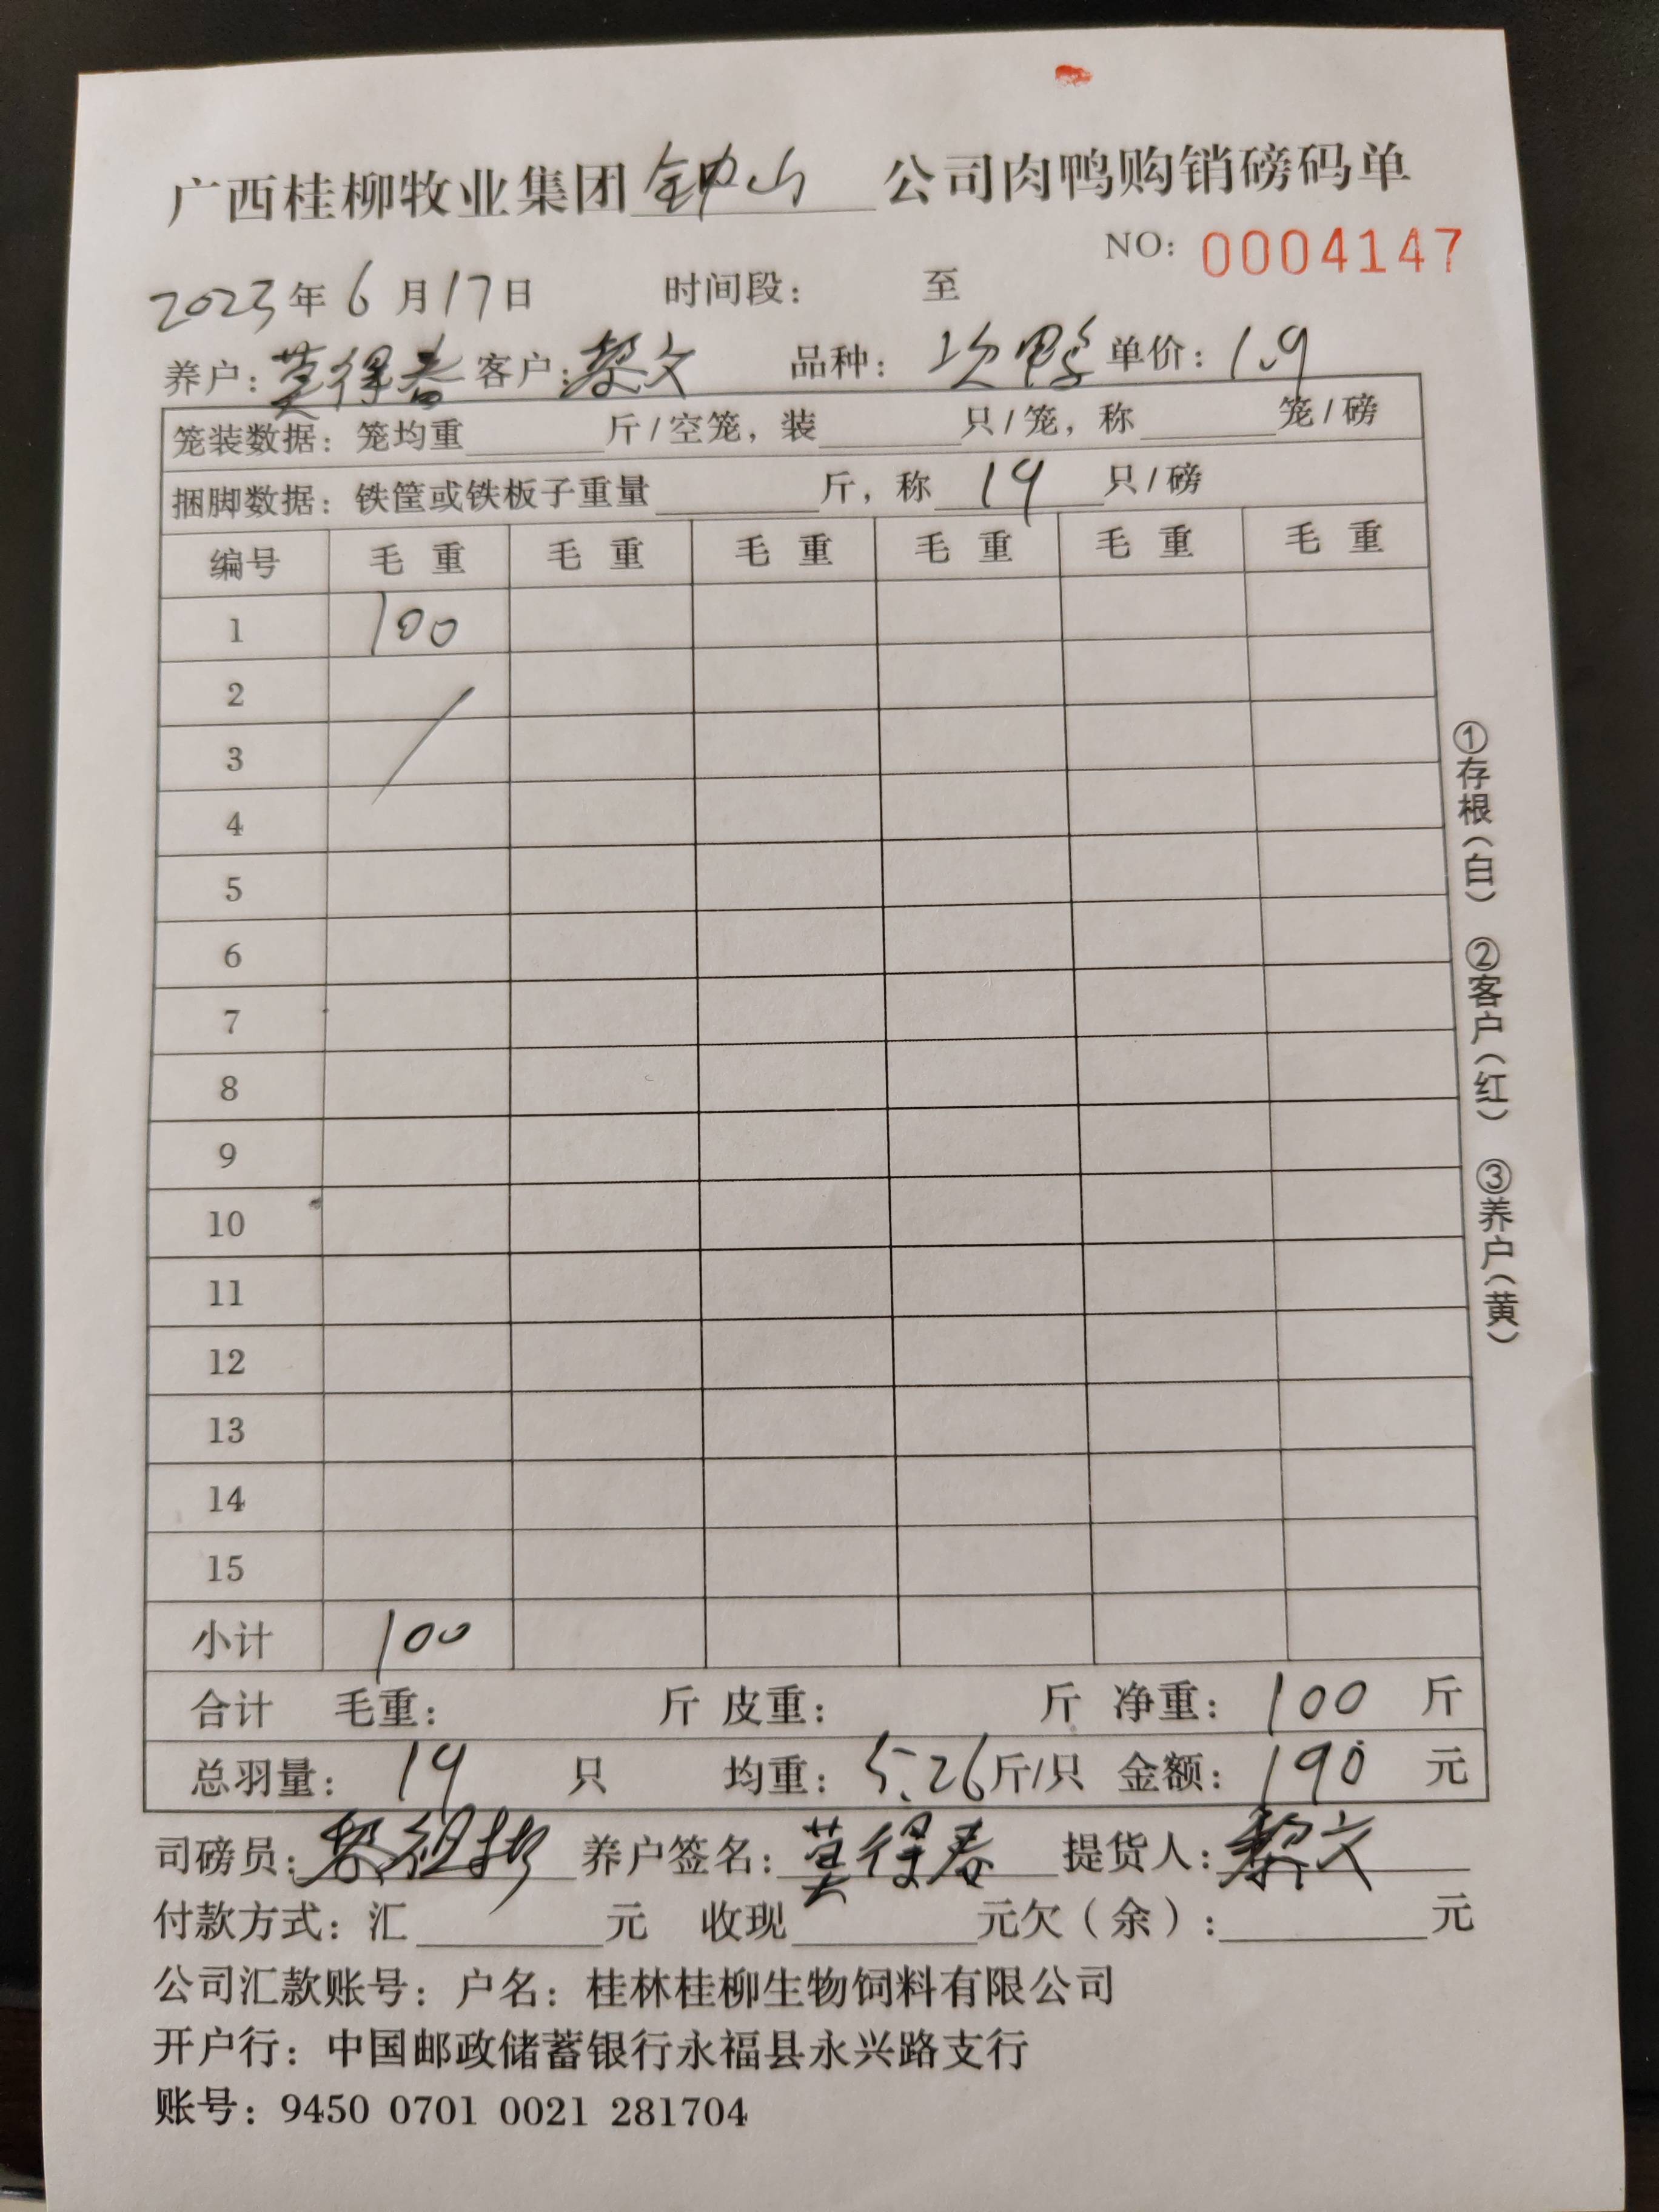 广西桂柳牧业集团 钟山 公司肉鸭购销磅码单
NO: 0004147
2023年6月17日 时间段: 至
养户: 莫得春 客户: 黎文 品种: 次鸭 单价: 1.9
笼装数据: 笼均重 斤/空笼, 装 只/笼, 称 笼/磅
捆脚数据: 铁筐或铁板子重量 斤, 称 19 只/磅
编号 毛重 毛重 毛重 毛重 毛重 毛重
1 100
2
3
4
5
6
7
8
9
10
11
12
13
14
15
小计 100
合计 毛重: 斤 皮重: 斤 净重: 100 斤
总羽量: 19 只 均重: 5.26 斤/只 金额: 190 元
司磅员: 养户签名: 莫得春 提货人: 黎文
付款方式: 汇 元 收现 元欠(余): 元
公司汇款账号: 户名: 桂林桂柳生物饲料有限公司
开户行: 中国邮政储蓄银行永福县永兴路支行
账号: 9450 0701 0021 281704
①存根(白) ②客户(红) ③养户(黄)